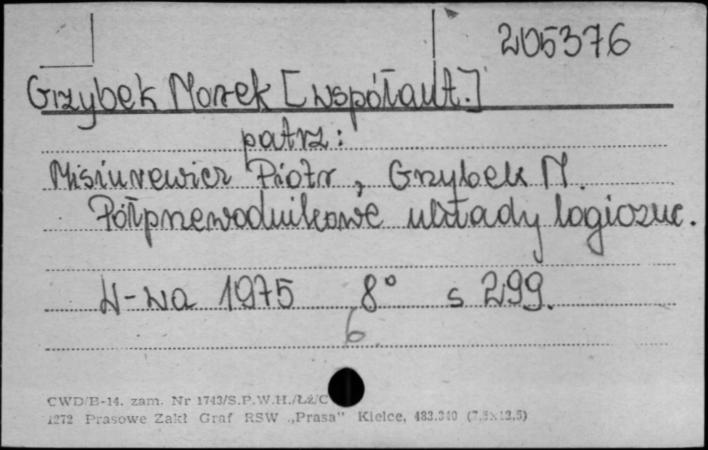 205376
Grzybek Marek [współaut.]
patrz:
Misiurewicz Piotr, Grzybek M.
Półprzewodnikowe układy logiczne.
W-wa 1975 8° s 299.
6
CWD/B-14. zam. Nr 1743/S.P.W.H./Łż/C
1272 Prasowe Zakł Graf RSW „Prasa" Kielce, 483.340 (7,5x12,5)